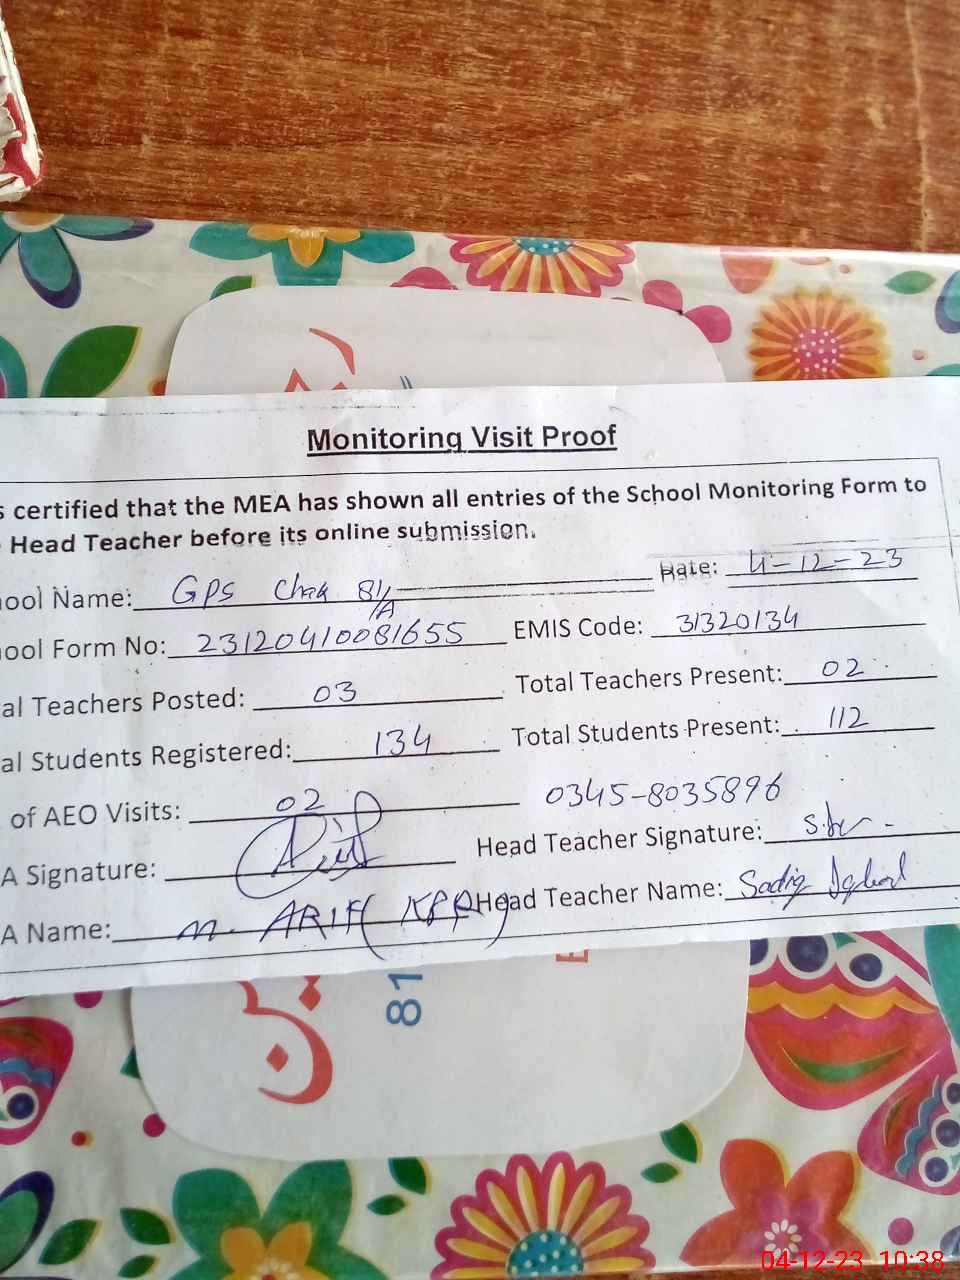 Monitoring Visit Proof
s certified that the MEA has shown all entries of the School Monitoring Form to
Head Teacher before its online submission.
ool Name: GPS Chak 81/A Date: 4-12-23
ool Form No: 23120410081655 EMIS Code: 31320134
al Teachers Posted: 03 Total Teachers Present: 02
al Students Registered: 134 Total Students Present: 112
of AEO Visits: 02 0345-8035896
A Signature: Head Teacher Signature:
A Name: M. ARIF (KPR) Head Teacher Name: Sadiq Iqbal
81
04-12-23 10:38